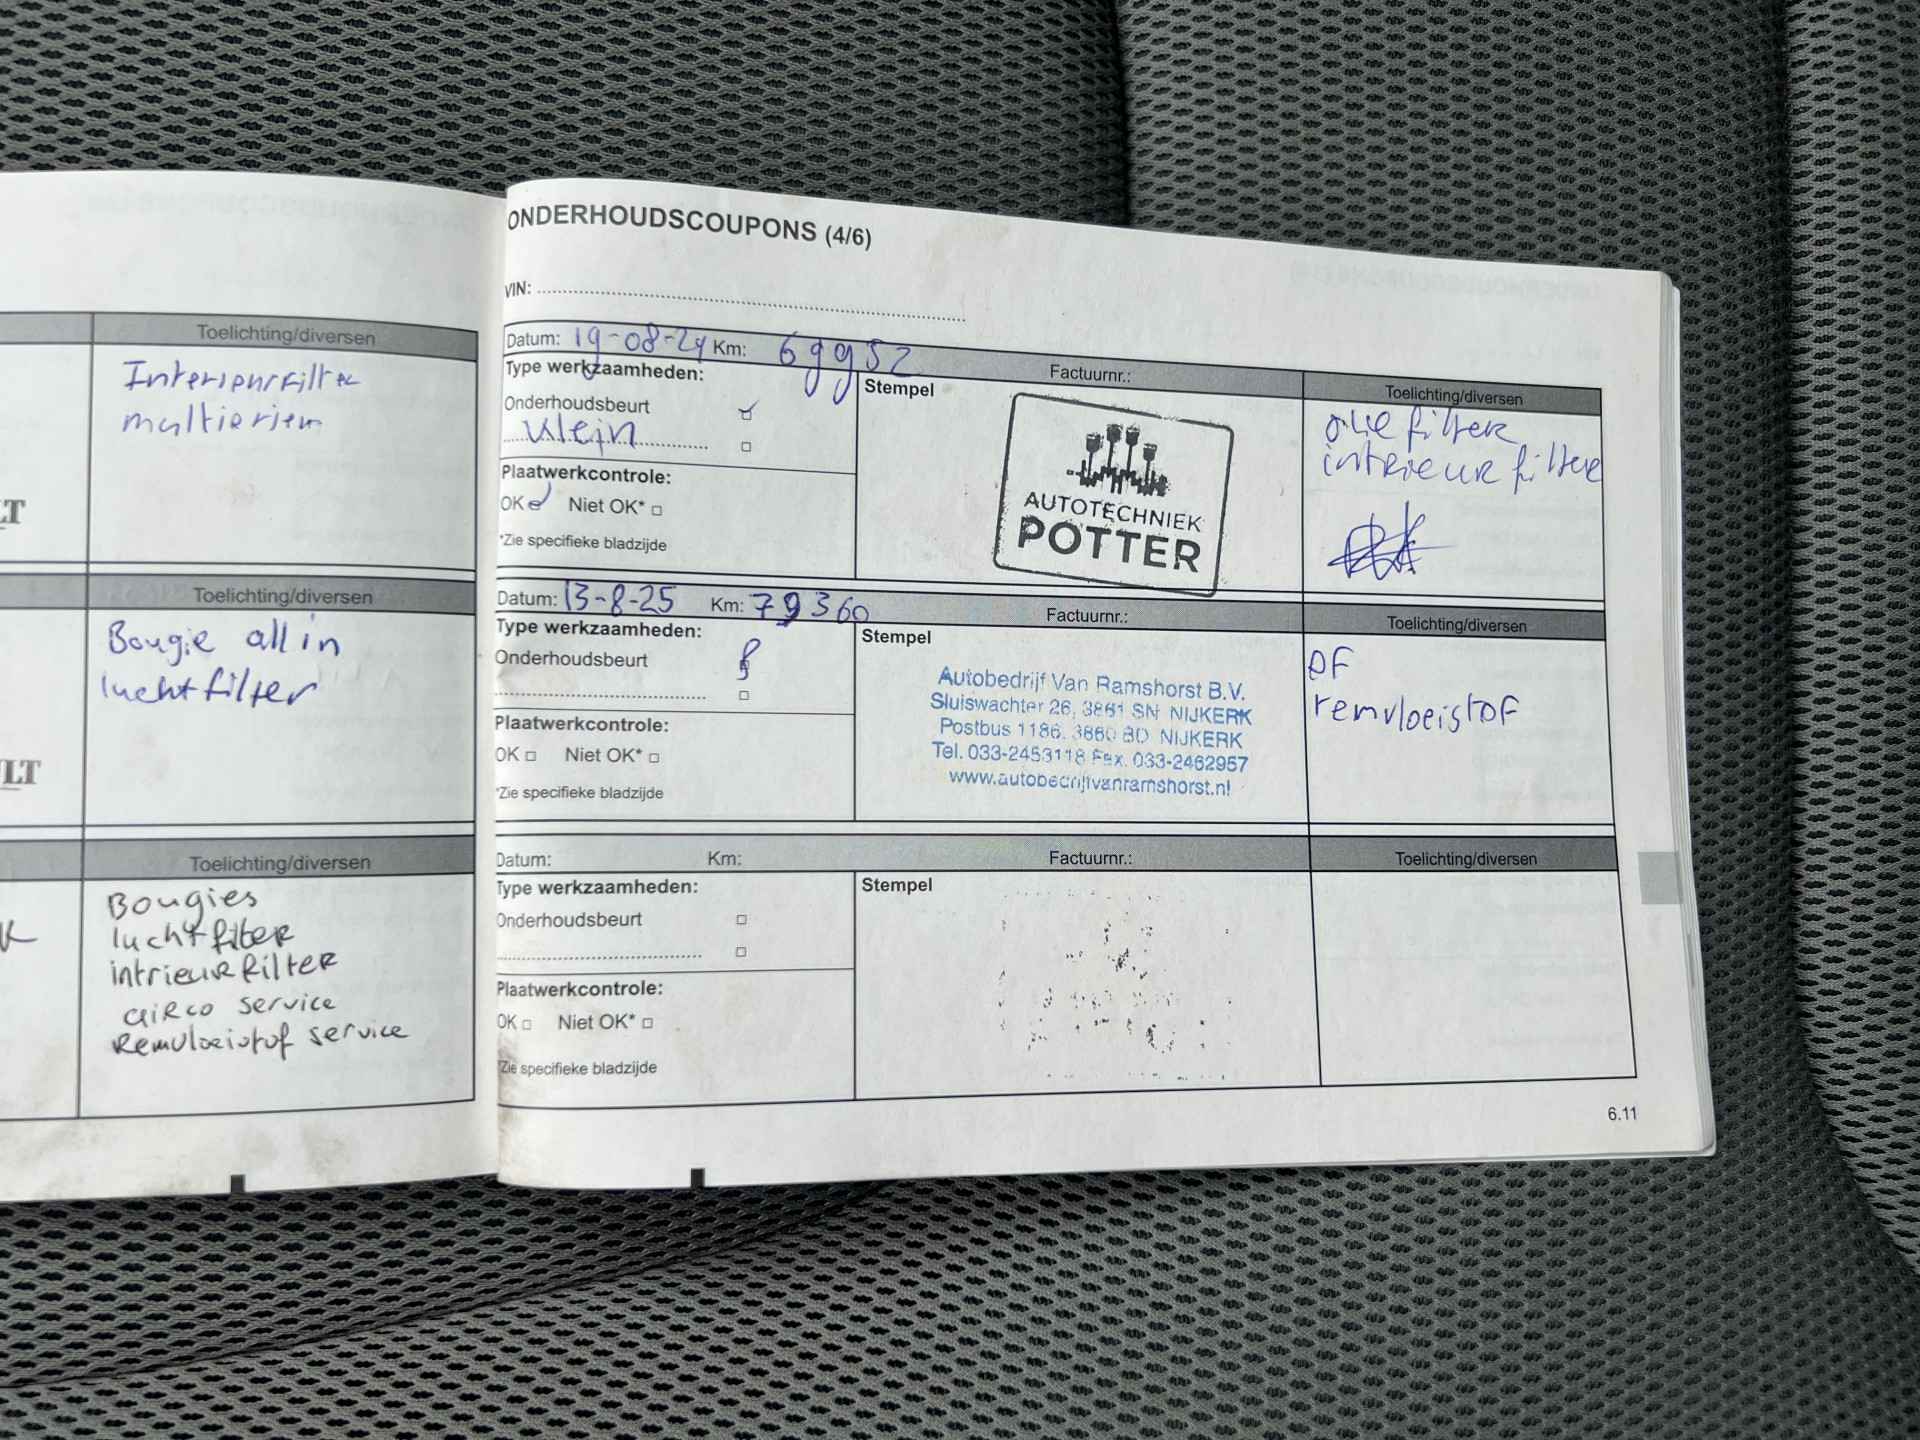 Toelichting/diversen
Interieurfilter
multieriem
LT
Toelichting/diversen
Bougie all in
luchtfilter
LT
Toelichting/diversen
Bougies
luchtfilter
intrieurfilter
airco service
Remvloeistof service
ONDERHOUDSCOUPONS (4/6)
VIN:
Datum: 19-08-24 Km: 69952 Factuurnr.:
Type werkzaamheden:
Onderhoudsbeurt
klein
Plaatwerkcontrole:
OK Niet OK*
*Zie specifieke bladzijde
Stempel
AUTOTECHNIEK
POTTER
Toelichting/diversen
olie filter
intrieur filter
Datum: 13-8-25 Km: 79360 Factuurnr.:
Type werkzaamheden:
Onderhoudsbeurt
Plaatwerkcontrole:
OK Niet OK*
*Zie specifieke bladzijde
Stempel
Autobedrijf Van Ramshorst B.V.
Sluiswachter 26, 3861 SN NIJKERK
Postbus 1186, 3860 BD NIJKERK
Tel. 033-2453118 Fax. 033-2462957
www.autobedrijfvanramshorst.nl
Toelichting/diversen
remvloeistof
Datum: Km: Factuurnr.:
Type werkzaamheden:
Onderhoudsbeurt
Plaatwerkcontrole:
OK Niet OK*
*Zie specifieke bladzijde
Stempel
Toelichting/diversen
6.11